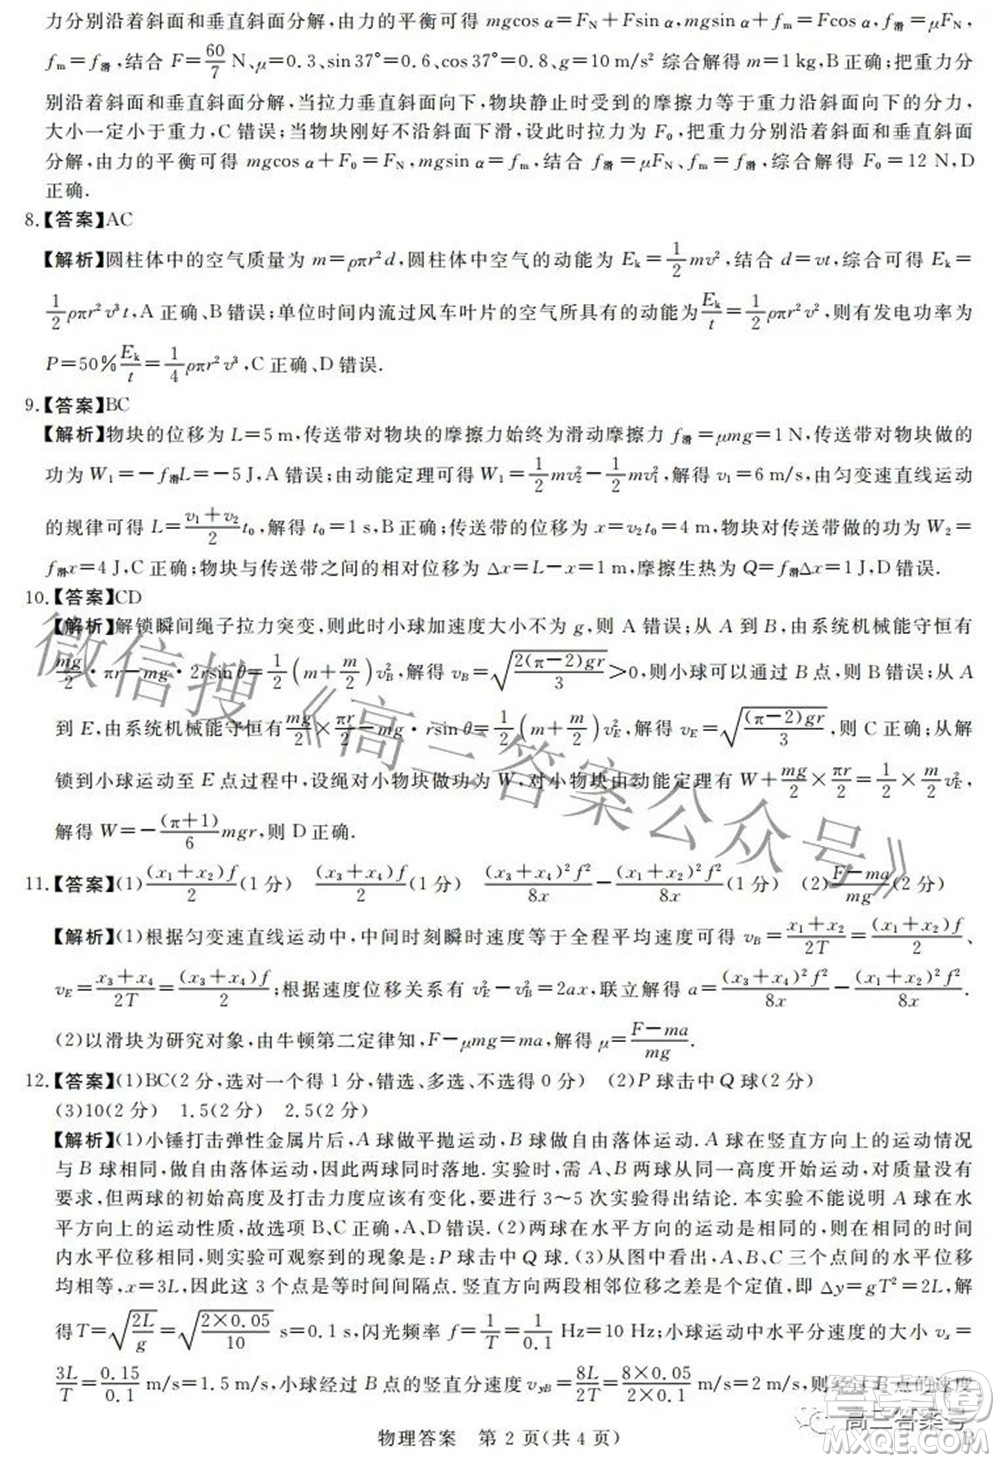 力分别沿着斜面和垂直斜面分解,由力的平衡可得 mgcos α=F_N+Fsin α,mgsin α+f_m=Fcos α,f_滑=μF_N,
f_m=f_滑,结合 F=60/7 N、μ=0.3,sin37°=0.6,cos37°=0.8,g=10 m/s² 综合解得 m=1 kg,B正确;把重力分
别沿着斜面和垂直斜面分解,当拉力垂直斜面向下,物块静止时受到的摩擦力等于重力沿斜面向下的分力,
大小一定小于重力,C错误;当物块刚好不沿斜面下滑,设此时拉力为 F₀,把重力分别沿着斜面和垂直斜面
分解,由力的平衡可得 mgcos α+F₀=F_N,mgsin α=f_m,结合 f_滑=μF_N、f_m=f_滑,综合解得 F₀=12 N,D
正确.
8.【答案】AC
【解析】圆柱体中的空气质量为 m=ρπr²d,圆柱体中空气的动能为 E_k=1/2 mv²,结合 d=vt,综合可得 E_k=
1/2 ρπr²v³t,A正确、B错误;单位时间内流过风车叶片的空气所具有的动能为 E_k/t=1/2 ρπr²v²,则有发电功率为
P=50% E_k/t=1/4 ρπr²v³,C正确、D错误.
9.【答案】BC
【解析】物块的位移为 L=5 m,传送带对物块的摩擦力始终为滑动摩擦力 f_滑=μmg=1 N,传送带对物块做的
功为 W₁=-f_滑L=-5 J,A错误;由动能定理可得 W₁=1/2 mv₂²-1/2 mv₁²,解得 v₁=6 m/s,由匀变速直线运动
的规律可得 L=(v₁+v₂)/2 t₀,解得 t₀=1 s,B正确;传送带的位移为 x=v₂t₀=4 m,物块对传送带做的功为 W₂=
f_滑x=4 J,C正确;物块与传送带之间的相对位移为 Δx=L-x=1 m,摩擦生热为 Q=f_滑Δx=1 J,D错误.
10.【答案】CD
【解析】解锁瞬间绳子拉力突变,则此时小球加速度大小不为 g,则 A 错误;从 A 到 B,由系统机械能守恒有
mg/2·πr-mg·2rsin θ=1/2(m+m/2)v_B²,解得 v_B=√(2(π-2)gr/3)>0,则小球可以通过 B 点,则 B 错误;从 A
到 E,由系统机械能守恒有 mg/2×πr/2-mg·rsin θ=1/2(m+m/2)v_E²,解得 v_E=√((π-2)gr/3),则 C 正确;从解
锁到小球运动至 E 点过程中,设绳对小物块做功为 W,对小物块由动能定理有 W+mg/2×πr/2=1/2×m/2 v_E²,
解得 W=-(π+1)/6 mgr,则 D 正确.
11.【答案】(1)(x₁+x₂)f/2(1分) (x₃+x₄)f/2(1分) (x₃+x₄)²f²/8x-(x₁+x₂)²f²/8x(1分) (2)(F-ma)/mg(2分)
【解析】(1)根据匀变速直线运动中,中间时刻瞬时速度等于全程平均速度可得 v_B=(x₁+x₂)/2T=(x₁+x₂)f/2、
v_E=(x₃+x₄)/2T=(x₃+x₄)f/2;根据速度位移关系有 v_E²-v_B²=2ax,联立解得 a=(x₃+x₄)²f²/8x-(x₁+x₂)²f²/8x.
(2)以滑块为研究对象,由牛顿第二定律知,F-μmg=ma,解得 μ=(F-ma)/mg.
12.【答案】(1)BC(2分,选对一个得1分,错选、多选、不选得0分) (2)P球击中Q球(2分)
(3)10(2分) 1.5(2分) 2.5(2分)
【解析】(1)小锤打击弹性金属片后,A球做平抛运动,B球做自由落体运动.A球在竖直方向上的运动情况
与 B 球相同,做自由落体运动,因此两球同时落地.实验时,需 A、B 两球从同一高度开始运动,对质量没有
要求,但两球的初始高度及打击力度应该有变化,要进行 3~5 次实验得出结论.本实验不能说明 A 球在水
平方向上的运动性质,故选项 B、C 正确,A、D 错误.(2)两球在水平方向的运动是相同的,则在相同的时间
内水平位移相同,则实验可观察到的现象是:P 球击中 Q 球.(3)从图中看出,A、B、C 三个点间的水平位移
均相等,x=3L,因此这 3 个点是等时间间隔点.竖直方向两段相邻位移之差是个定值,即 Δy=gT²=2L,解
得 T=√(2L/g)=√(2×0.05/10) s=0.1 s,闪光频率 f=1/T=1/0.1 Hz=10 Hz;小球运动中水平分速度的大小 v_x=
3L/T=0.15/0.1 m/s=1.5 m/s,小球经过 B 点的竖直分速度 v_yB=8L/2T=8×0.05/2×0.1 m/s=2 m/s;经过 B 点的速度
物理答案 第 2 页(共 4 页)
B
微信搜《高三答案公众号》
高三答案号